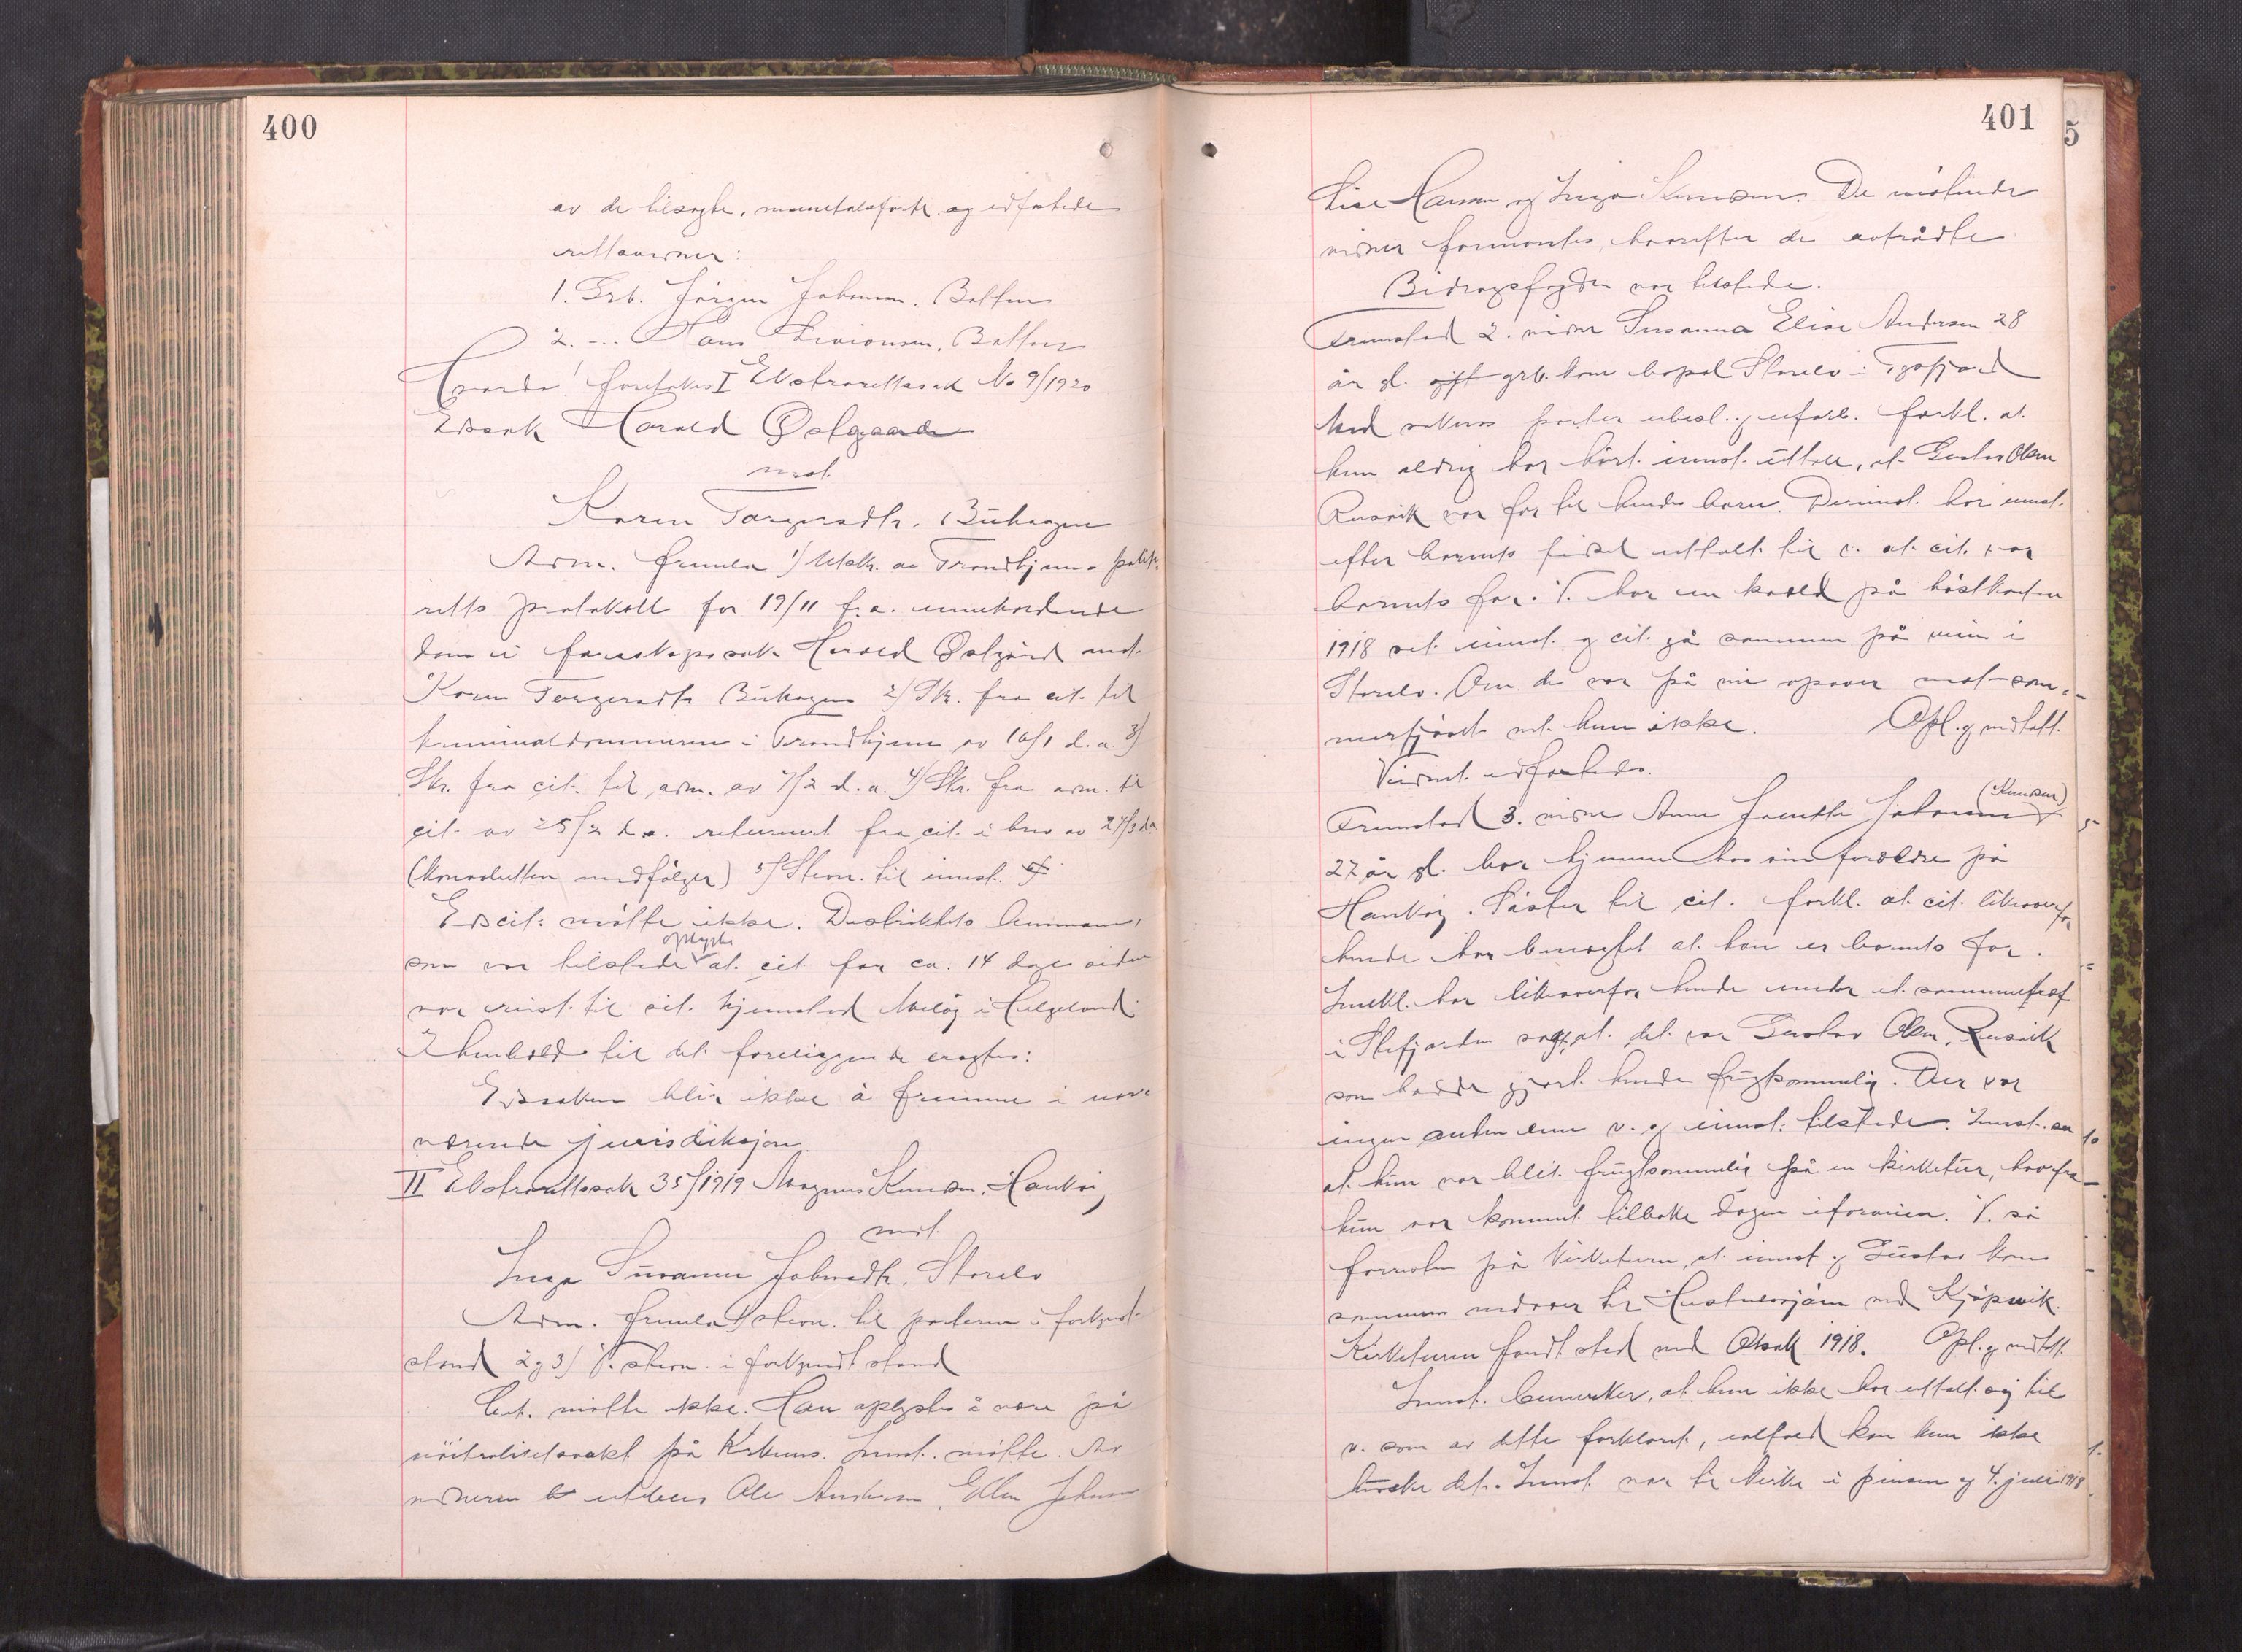 400
av de tilsagte, mantalsførte og edfæstede
rettsvidner:
1. Grb. Jörgen Johansen, Balsnes
2. -..- Hans Sivionsen, Balsnes
Hvorda foretokes I Ekstrarettssak No 9/1920
Edssak Harald Østgaard
mot
Karen Torgersdtr. Buhaugen
Adm. fremla 1) Utskr. av Trondhjems politi-
retts protokoll for 19/11 f.a. inneholdende
dom i farskapssak Harald Østgård mot
Karen Torgersdtr Buhaugen 2) Skr. fra cit. til
kriminaldommeren i Trondhjem av 16/1 d.a. 3)
Skr. fra cit. til adm. av 7/2 d.a. 4) Skr. fra adm. til
cit. av 25/2 d.a. returnert fra cit. i brev av 27/3 d.a.
(konvolutten medfölger) 5) Stevn. til innst.
Edscit. mötte ikke. Distriktets lensmann,
som var tilstede oplyste at cit. for ca. 14 dage siden
var reist til sit hjemsted Melöy i Helgeland.
I henhold til det foreliggende eragtes:
Edssaken blir ikke å fremme i nær-
værende jurisdiksjon.
II Ekstrarettssak 35/1919 Magnus Knutsen, Hanköi,
mot
Inga Susanne Johnsdtr. Storelv
Adm. fremla 1) stevn. til partene i forkyndt
stand 2 og 3) V. stevn. i forkyndt stand
Cit. mötte ikke. Han oplystes å være på
nöitralitetsvakt på Kirkenes. Innst. mötte. Av
vidnerne uteblev Ole Andersen, Ellen Johnsen
401
5
Lise Hansen og Inga Knutsen. De mötende
vidner formantes, hvorefter de avtrådte
Bidragsfogden var tilstede.
Fremstod 2. vidne Susanna Elise Andersen 28
år gl. gift grb. kone bopæl Storelv i
Med sakens parter ubesl. og uforb. forkl. at
hun aldrig har hört innst. uttale, at Gustav Olsen
Rusvik var far til hendes barn. Derimot har innst.
efter barnets födsel uttalt til v. at cit. var
barnets far. V. har en kveld på hösthanten
1918 set innst. og cit. gå sammen på veien i
Storelv. Om de var på vei opover mot som-
merfjöset vet hun ikke. Opl. og vedtatt.
Vidnet edfæstedes.
Fremstod 3. vidne Anna Jensette Johansen (Knutsen)
27 år gl. bor hjemme hos sine foreldre på
Hanköy. Söster til cit. forkl. at cit. likeoverfor
hende har benegtet at han er barnets far.
Innkl. har likeoverfor hende under et sammentref
i Slefjorden sagt, at det var Gustav Olsen, Rusvik
som hadde gjort hende frugtsommelig. Der var
ingen anden enn v. og innst. tilstede. Innst. sa
at hun var blit frugtsommelig på en kirketur, hvorfra
hun var kommet tilbake dagen iforveien. V. så
forresten på kirketuren, at innst. og Gustav kom
sammen nedover til ved Kjöpvik.
Kirketuren fandt sted ved Olsok 1918. Opl. og vedtatt.
Innst. bemerker, at hun ikke har uttalt sig til
v. som av dette forklaret, ialfald kan hun ikke
huske det. Innst. var til kirke i pinsen og 4. juli 1918